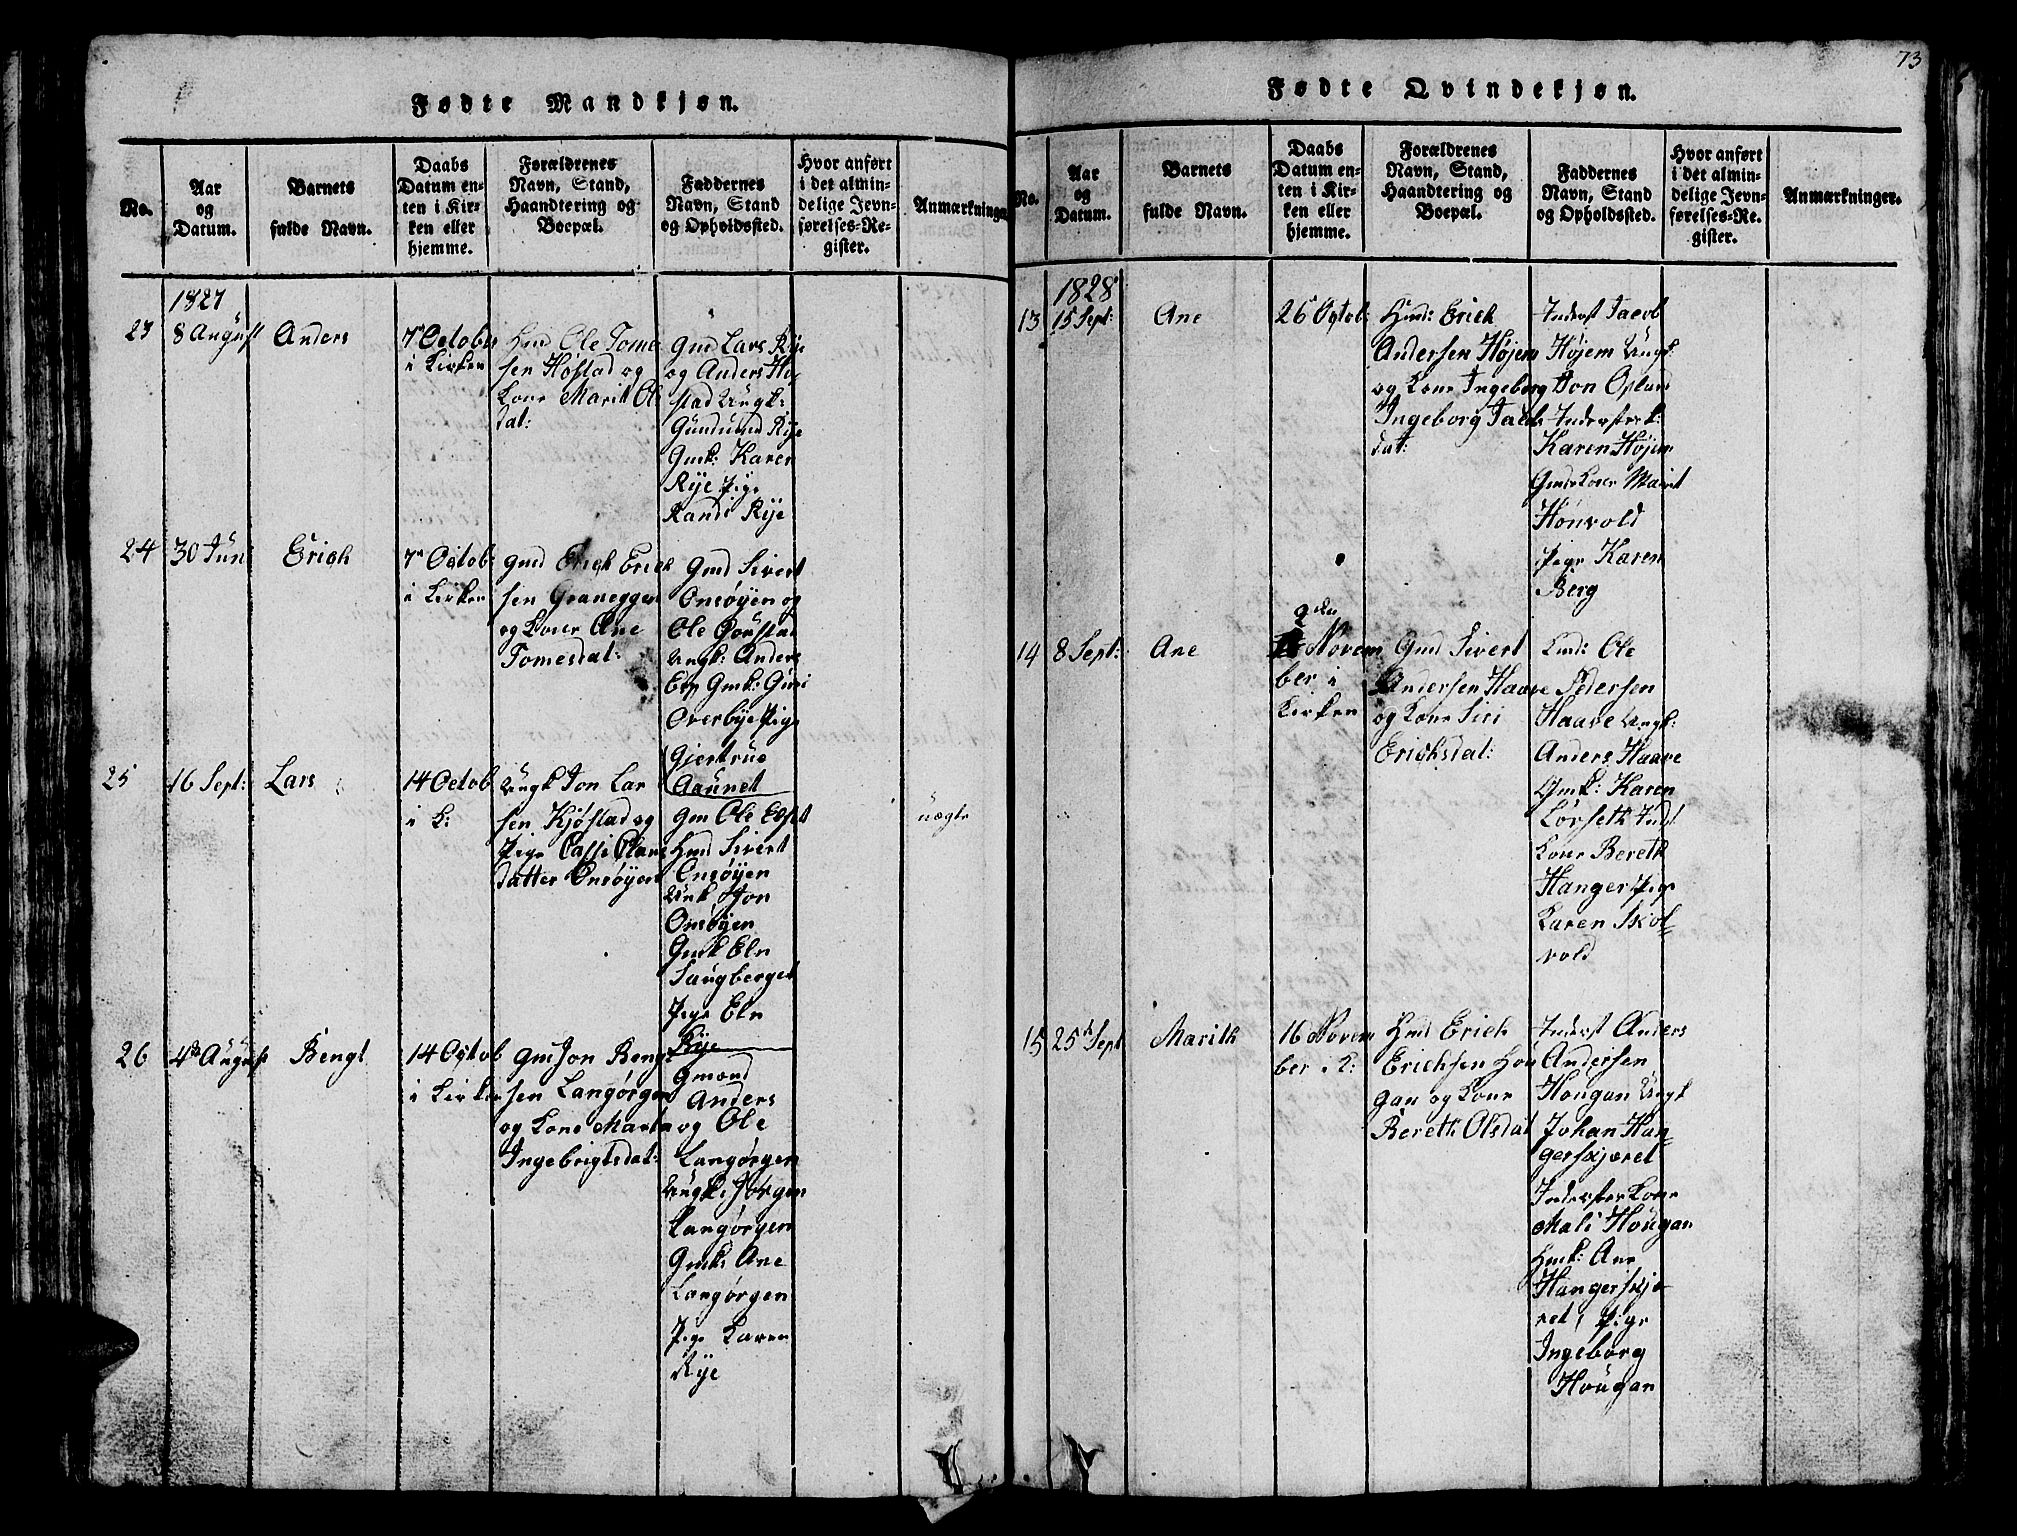 73
Fødte Mandkjøn.
No.
Aar
og
Datum.
Barnets
fulde Navn.
Daabs
Datum en-
ten i Kir-
ken eller
hjemme.
Forældrenes
Navn, Stand,
Haandtering og
Boepæl.
Faddernes
Navn, Stand
og Opholdssted.
Hvor anført
i det almin-
delige Jevn-
førelses-Re-
gister.
Anmærkninger
1827
23
8 August
Anders
7de Octobr
i Kirken
Hmd Ole Tome
sen Høstad og
Kone Marit Ols
dat:
Gmd Lars Rye
og Anders Hø-
stad Ungk:
Gundmund Rye
Gmk: Karen
Rye Pige
Randi Rye
24
30 Jun
Erich
7de Octob:
i Kirken
Gmd Erich Erich
sen Graneggen
og Kone Ane
Tomesdat:
Gmd Sivert
Onsøyen og
Ole
Ungk: Anders
Gmk: Guri
Overbye Pige
Gjertrue
Aaunet
25
16 Sept:
Lars
14 Octob
i K:
Ungk Jon Lar
sen Kjøstad og
Pige
datter Onsøyen
Gm Ole
Hmd Sivert
Onsøyen
Unk Jon
Onsøyen
Gmk Eln
Saugberget
Pige Eln
Rye
uægte
26
4de August
Bengt
14 Octob
i Kirken
Gmd Jon Bengt
sen Langørgen
og Kone Marta
Ingebrigtsdat:
Gmænd
Anders
og Ole
Langørgen
Ungk: Jørgen
Langørgen
Gmk: Ane
Langørgen
Pige Karen
Rye
Fødte Qvindekjøn.
No.
Aar
og
Datum.
Barnets
fulde Navn.
Daabs
Datum en-
ten i Kir-
ken eller
hjemme.
Forældrenes
Navn, Stand,
Haandtering og
Boepæl.
Faddernes
Navn, Stand
og Opholdssted.
Hvor anført
i det almin-
delige Jevn-
førelses-Re-
gister.
Anmærkninger.
1828
13
15 Sept:
Ane
26 Octob:
Hmd: Erich
Andersen Højem
og Kone Ingeborg
Ingeborg Jacobs
dat:
Inderst Jacob
Højem Ungk:
Jon Opland
Inderster k:
Karen Højem
Gmds Kone Marit
Hønvold
Pige Karen
Berg
14
8 Sept:
Ane
2den
Novem
ber i
Kirken
Gmd Sivert
Andersen Haave
og Kone Siri
Erichsdat:
Hmd: Ole
Pedersen
Haave Ungk:
Anders Haave
Gmk: Karen
Lørseth Indst
Kone Bereth
Hanger Pige
Karen Skol-
vold
15
25de Sept
Marith
16 Novem
ber K:
Hmd Erich
Erichsen Hou
gan og Kone
Bereth Olsdat
Inderst Anders
Andersen
Hougan Ungk
Johan Han-
gerskjæret
Inderster Kone
Mali Hougan
Hmk: Ane
Hangerskjæ
ret, Pige
Ingeborg
Hougan